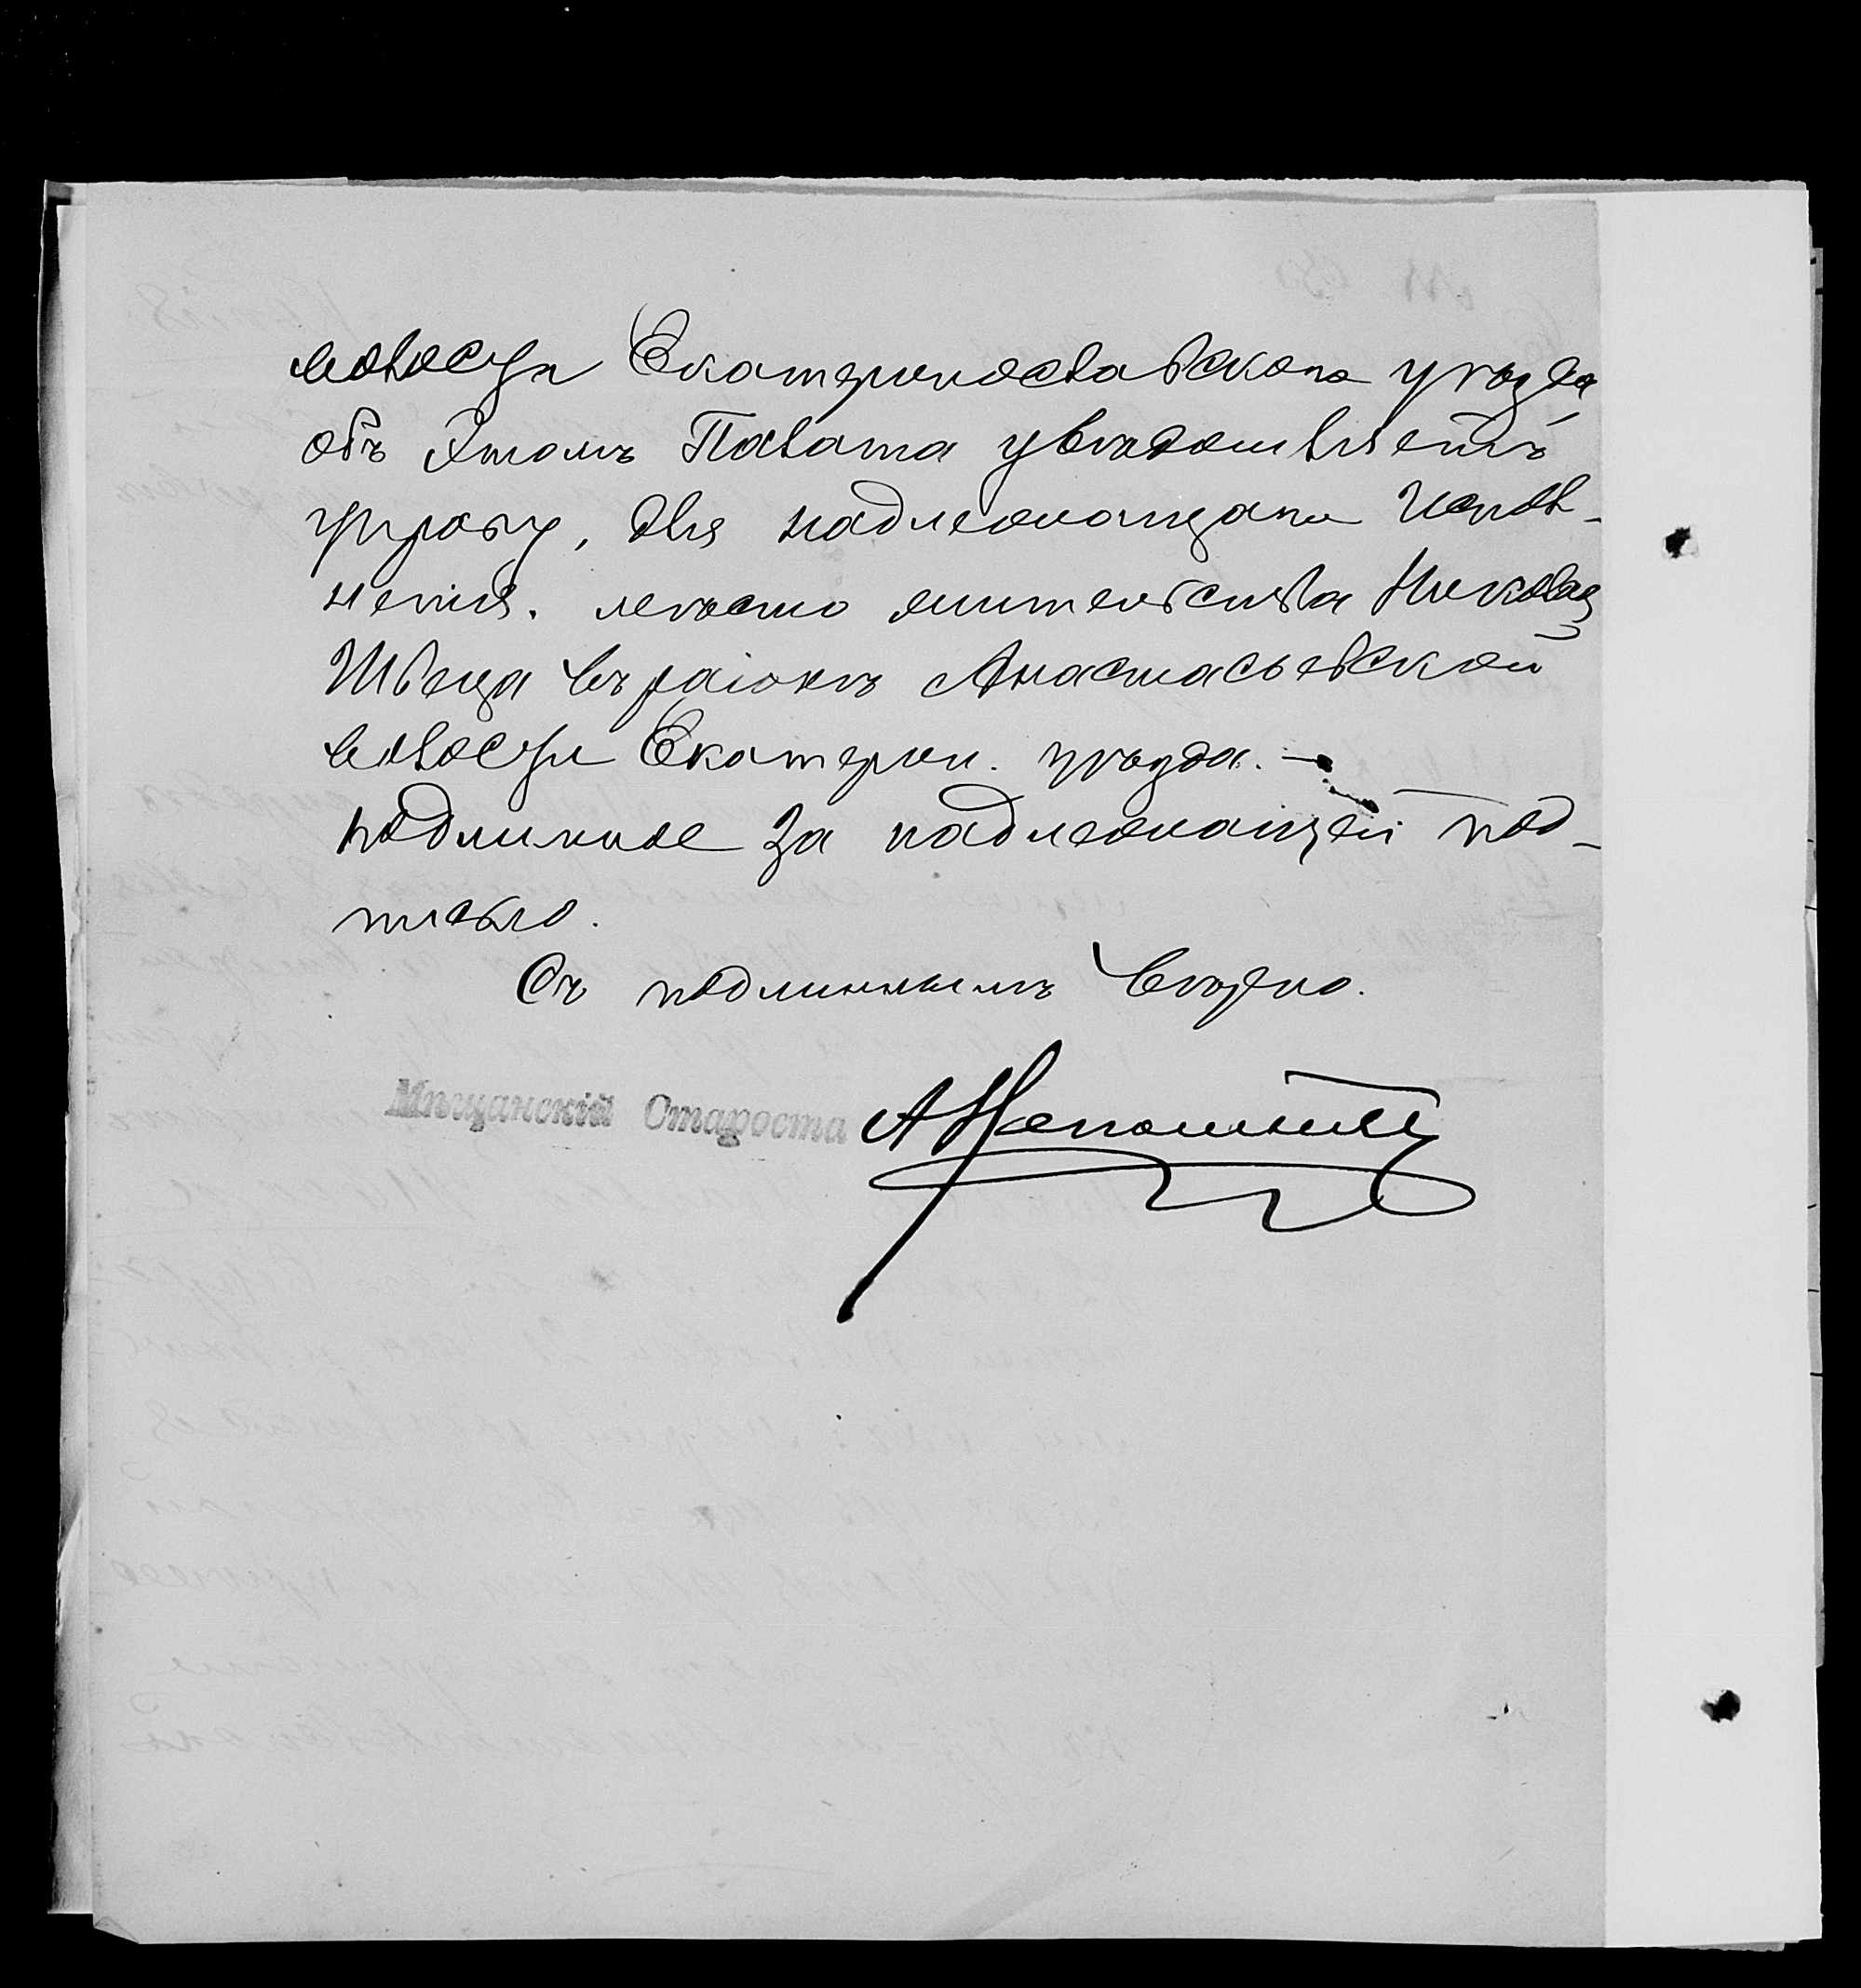 волости Екатеринославскаго уѣзда
объ этомъ Палата увѣдомляетъ
управу, для надлежащаго испол-
ненія. мѣсто жительства Николая
Швеца въ раіонѣ Анастасьевской
волости Екатерин. уѣзда. —
подлинное за надлежащей под-
писью.
Съ подлиннымъ вѣрно.
Мѣщанскій Староста